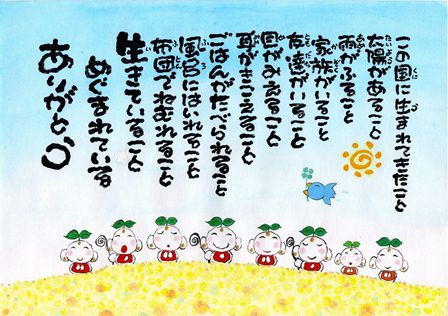 この国に生まれてきたこと
太陽があること
雨がふること
家族がいること
友達がいること
目がみえること
耳がきこえること
ごはんがたべられること
風呂にはいれること
布団でねむれること
生きていること
めぐまれている
ありがとう